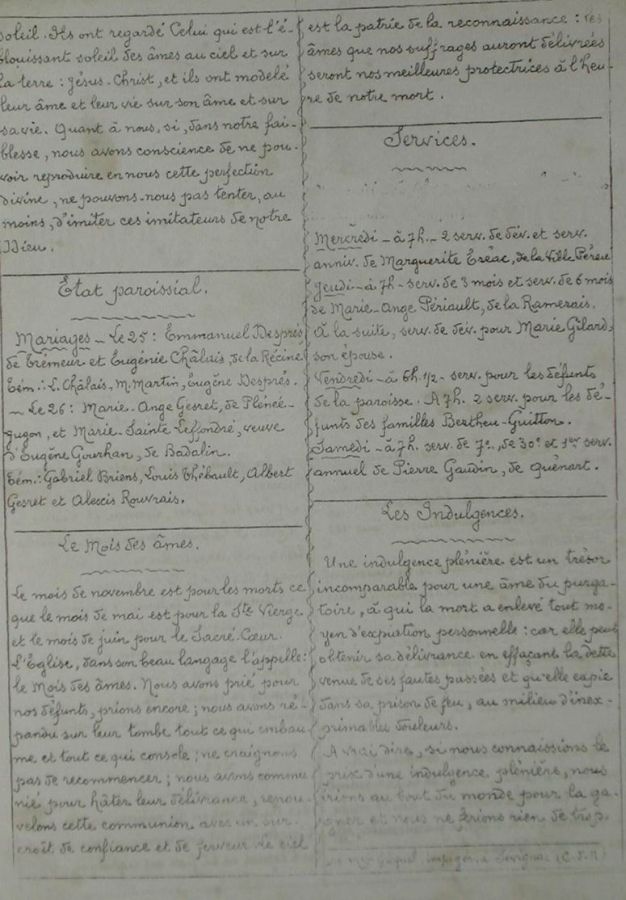 soleil. Ils ont regardé Celui qui est l'é-
blouissant soleil des âmes au ciel et sur
la terre : Jésus-Christ, et ils ont modelé
leur âme et leur vie sur son âme et sur
sa vie. Quant à nous, si, dans notre fai-
blesse, nous avons conscience de ne pou-
voir reproduire en nous cette perfection
divine, ne pouvons-nous pas tenter, au
moins, d'imiter ces imitateurs de notre
Dieu.
Etat paroissial.
Mariages - Le 25 : Emmanuel Després
de Trémeur et Eugénie Châlais, de la Récine
Tém. : L. Châlais, M. Martin, Eugène Després.
- Le 26 : Marie-Ange Gesret, de Plénée-
Jugon, et Marie-Sainte Leffondré, veuve
d'Eugène Gouhan, de Badalin.
Tém. : Gabriel Briens, Louis Thébault, Albert
Gesret et Alexis Rouvrais.
Le Mois des âmes.
Le mois de novembre est pour les morts ce
que le mois de mai est pour la Ste Vierge
et le mois de juin pour le Sacré-Cœur.
L'Église, dans son beau langage l'appelle :
le Mois des âmes. Nous avons prié pour
nos défunts, prions encore ; nous avons ré-
pandu sur leur tombe tout ce qui embau-
me et tout ce qui console ; ne craignons
pas de recommencer ; nous avons commu-
nié pour hâter leur délivrance, renou-
velons cette communion avec un sur-
croît de confiance et de ferveur
ciel
est la patrie de la reconnaissance : les
âmes que nos suffrages auront délivrées
seront nos meilleures protectrices à l'heu-
re de notre mort.
Services.
Mercredi - à 7h. - 2 serv. de dév. et serv.
anniv. de Marguerite Tréac, de la Ville Péreu
Jeudi - à 7h - serv. de 3 mois et serv. de 6 mois
de Marie-Ange Périault, de la Ramerais.
A la suite, serv. de dév. pour Marie Gilard,
son épouse.
Vendredi - à 6h. 1/2 - serv. pour les défunts
de la paroisse. A 7h. 2 serv. pour les dé-
funts des familles Bertheu-Guitton.
Samedi - à 7h. serv. de 7e, de 30e et 1er serv.
annuel de Pierre Gaudin, de Quénart.
Les Indulgences.
Une indulgence plénière est un trésor
incomparable pour une âme du purga-
toire, à qui la mort a enlevé tout mo-
yen d'expiation personnelle : car elle peut
obtenir sa délivrance en effaçant la dette
venue de ses fautes passées et qu'elle expie
dans sa prison de feu, au milieu d'inex-
primables douleurs.
A vrai dire, si nous connaissions le
prix d'une indulgence plénière, nous
irions au bout du monde pour la ga-
gner et nous ne ferions rien de trop.